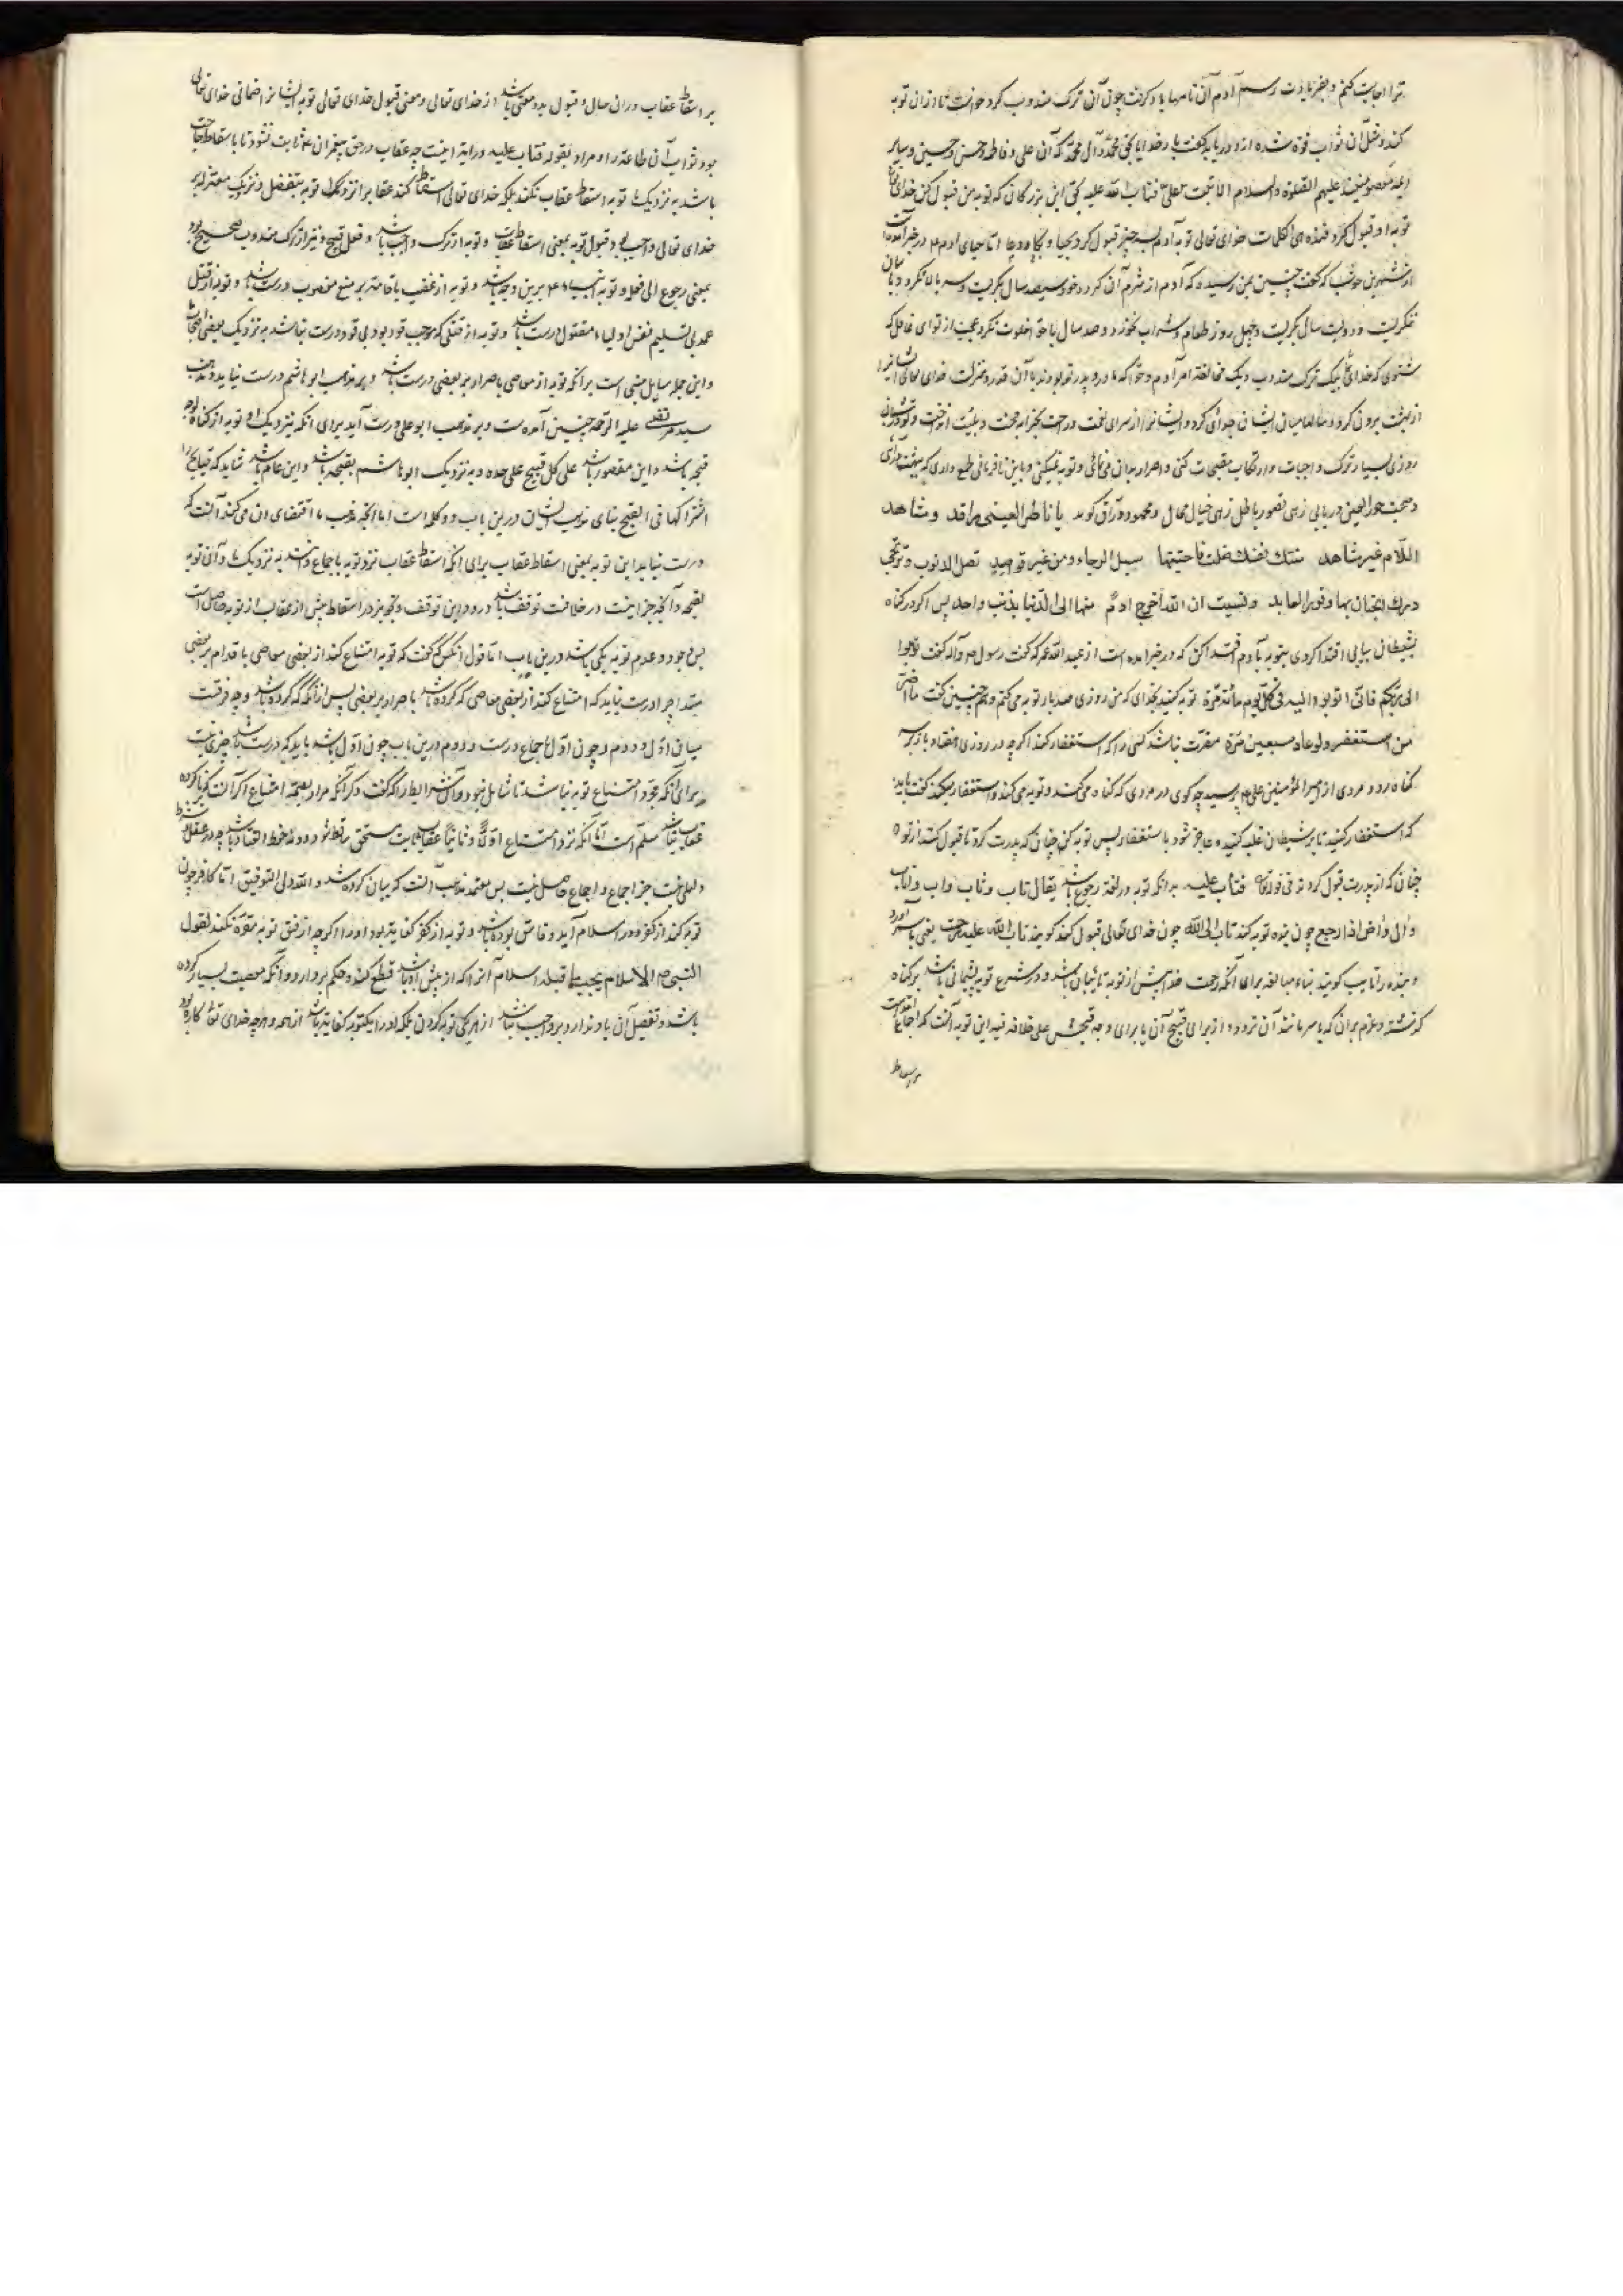 ترا اجابت کنم و بفریادت رسم آدم آن نامها یاد گرفت چون آن ترک مندوب کرد خواست تا از آن توبه
کند و مثل آن ثواب فوت شده از او دریابد گفت بار خدایا بحق محمد و آل محمد که آن علی و فاطمه و حسن و حسین و سایر
ائمه معصومین‌اند علیهم الصلوة والسلام الا تبت علی فتاب الله علیه بحق این بزرگان که توبه من قبول کن خدای تعالی
توبه او قبول کرد کلمات خدای تعالی توبه آدم بسه چیز قبول کرد بحیا و بکا و دعا اما حیای آدم در خبر آمده است
از شهر بن حوشب که گفت چنین بمن رسیده که آدم از شرم آن کرده خود سیصد سال بگریست و سر بالا نکرد
بگریست و دویست سال بگریست و چهل روز طعام و شراب نخورد و صد سال با حوا خلوت نکرد عجب از تو ای غافل که
شنوی که خدای بیک ترک مندوب و یک مخالفة امر آدم و حوا که مادر و پدر تو بودند با آن قدر و منزلت خدای تعالی ایشانرا
از بهشت برون کرد و میان ایشان جدائی کرد و ایشانرا از سرای نعمت و راحت بسرای محنت و بلیت انداخت و تو
روزی بسیار ترک واجبات و ارتکاب مقبحات کنی و اصرار بدان می‌نمائی و توبه نمیکنی و با این نافرمانی طمع داری که بهشت
و صحبت حور العین دریابی زهی تصور باطل زهی خیال محال و محمود وراق گوید یا ناظرا لعینی راقد و مشاهد
اللامر غیر مشاهد منتک نفسک ضلت فابحتها سبل الرجاء و من غیر قواصد تصل الذنوب و ترتجی
درک الجنان بها و فوز العابد و نسیت ان الله اخرج آدم منها الی الدنیا بذنب واحد پس اگر در گناه
بشیطان بیابی اقتدا کردی بتوبه بآدم اقتدا کن که در خبر آمده است از عبد الله عمر که گفت رسول ص و آله گفت توبوا
الی ربکم فانی اتوب الیه فی کل یوم مائة مرة توبه کنید بخدای که من روزی صد بار توبه می‌کنم و هم چنین گفت ما اصر
من استغفر و لو عاد سبعین مرة مصر نباشد کسی را که استغفار کند اگرچه در روزی هفتاد بار بسر
گناه رود مردی از امیر المؤمنین علی پرسید چه گوی در مردی که گناه می‌کند و توبه می‌کند و استغفار میکند گفت باید
که استغفار کنید تا بر شیطان غلبه کنید و عاجز شود باستغفار پس توبه کن چنان که پدرت کرد تا قبول کند از تو
چنان که از پدرت قبول کرد فتاب علیه بدانکه توبه در لغة رجوع باشد یقال تاب و ثاب و آب و اناب
و آل و اض اذا رجع چون بنده توبه کند تاب الی الله چون خدای تعالی قبول کند گویند تاب الله علیه
و بنده را تایب گویند بناء مبالغه برای آنکه رحمت خدا پیش از توبه تائبان باشد و در شرع توبه پشیمانی باشد بر گناه
گذشته و عزم بر آن که با سر مانند آن نرود از برای قبح آن یا برای وجه قبحش علی خلاف فیه این توبه آنست که اجماع است
بر اسقاط
بر اسقاط عقاب در آن حال و قبول بدو معنی باشد از خدای تعالی و معنی قبول خدای تعالی توبه ایشانرا ضمانی خدای تعالی
بود ثواب آن طاعة را و مراد بقوله فتاب علیه در آیه اینست چه عقاب در حق پیغمبران ثابت نشود تا باسقاط حاجت
باشد به نزدیک ما توبه اسقاط عقاب نکند بلکه خدای تعالی اسقاط کند عقاب را نزدیک توبه بتفضل و نزدیک معتزله بر
خدای تعالی واجب بود قبول توبه بمعنی اسقاط عقاب و توبه از ترک واجب باشد و فعل قبیح و نیز از ترک مندوب صحیح بود
بمعنی رجوع الی فعله و توبه انبیاء ع برین وجه باشد و توبه از غصب با اقامت بر منع مغصوب درست باشد و توبه از قتل
عمد بی تسلیم نفس اولیاء مقتول درست باشد و توبه از قتلی که موجب قود بود بی قود درست نباشد به نزدیک بعضی اصحاب
و این جمله مسایل مبنی است بر آنکه توبه از معاصی با اصرار بر بعضی درست باشد و بر مذهب ابو هاشم درست نیاید و مذهب
سید مرتضی علیه الرحمه چنین آمده است و بر مذهب ابو علی درست آید برای آنکه نزدیک او توبه از گناه لوجه
قبحه باشد و این مقصور باشد علی کل قبیح علی حده و به نزدیک ابو هاشم لقبحه باشد و این عام باشد شاید که قبایح را
اشتراکها فی القبح بنای مذهب ایشان درین باب دو کلمه است اما آنچه مذهب ما اقتضای آن می‌کند آنست که
درست نیاید این توبه بمعنی اسقاط عقاب برای آنکه اسقاط عقاب نزد توبه باجماع دانسته به نزدیک ما و آن توبه
لقبحه و آنچه جز اینست در خلافست توقف باشد در و و این توقف و تجویز در اسقاط پیش از عقاب از توبه حاصل است
پس وجود و عدم توبه یکی باشد درین باب اما قول آنکس که گفت که توبه امتناع کند از بعضی معاصی با اقدام بر بعضی
مبتدا چرا درست نیاید که امتناع کند از بعضی معاصی که کرده باشد با اصرار بر بعضی پس از آنکه کرده باشد و چه فرقست
میان اول و دوم و چون اول باجماع درست و دوم درین باب چون اول باشد باید که درست باشد چیزی نیست
برای آنکه مجرد امتناع توبه نباشد تا شامل نبود آن شرایط را که گفت و گر آنکه مراد بصحة امتناع اگر آن است که ناکرده
عقاب نباشد مسلم است اما آنکه نزد امتناع اولا و ثانیا عقاب ثابت مستحق ساقط شود دونه خرط القتاد باشد چه در عقل
دلیلی نیست جز اجماع و اجماع حاصل نیست پس معتمد مذهب آنست که بیان کرده شد و الله ولی التوفیق اما کافر چون
توبه کند از کفر و در اسلام آید و فاسق بوده باشد و توبه از کفر کفایت بود او را اگرچه از فسق توبه مفرد نکند لقول
النبی ص الاسلام یجب ما قبله اسلام آنرا که از پیش او باشد قطع کند و حکم بردارد و آنکه معصیت بسیار کرده
باشد و تفصیل آن یاد ندارد بر و واجب نباشد از هر یکی توبه کردن بلکه او را یک توبه کفایت باشد از همه و هرچه خدای تعالی کاره بود